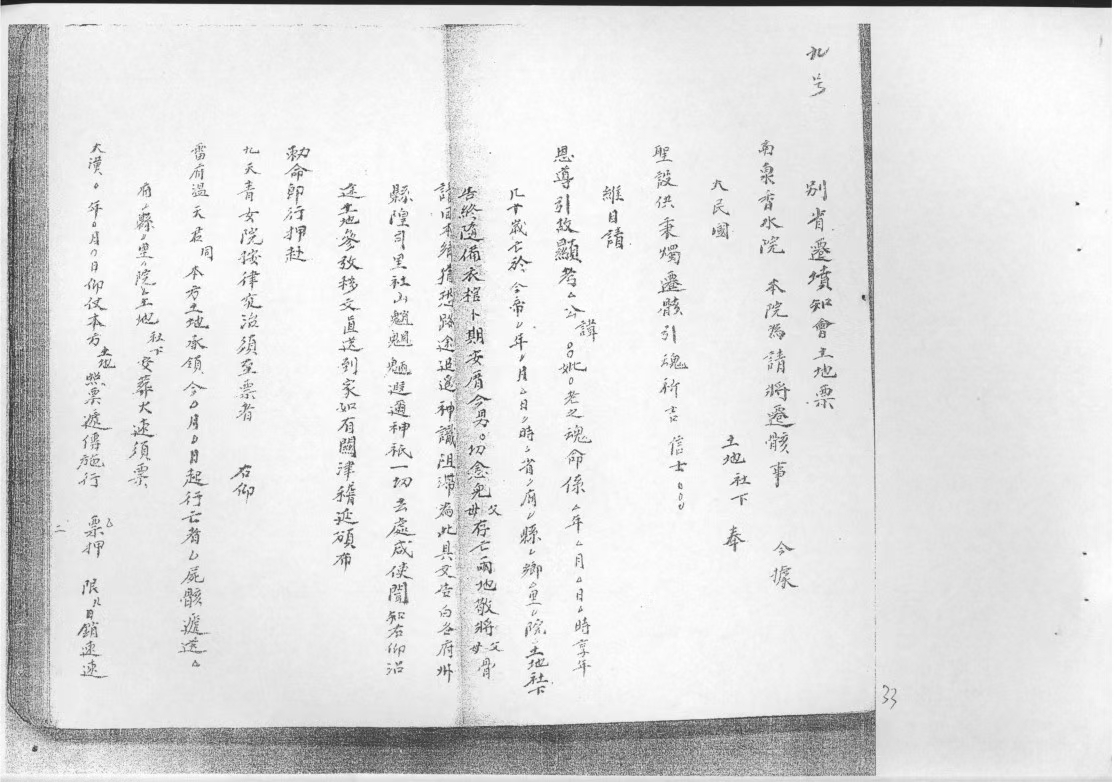 九号
別省遷墳知會土地票
南泉香水院　本院為請將遷骸事　今據
大民國　土地社下　奉
聖設供秉燭遷骸引魂祈吉　信士○○○
維日請
恩尊引故顯考厶公諱○○妣○老之魂命係厶年厶月厶日厶時享年
几十歲亡於今帝厶年厶月厶日厶時厶省厶府厶縣厶鄉厶里厶院土地社下
告終隨備衣棺卜期安厝今男○切念先父母存亡兩地敬將父母骨
請回本鄉猶恐路途迢遙神識阻滯為此具文告白各府州
縣隍司里社山魈魍魎遐邇神祇一切去處咸使聞知右仰沿
途土地參放移文直送到家如有關津稽延頒布
勅命即行押赴
九天青女院按律究治須至票者　右仰
雷府温天君同本方土地承領今○月○日起行亡者厶屍骸遞送厶
府厶縣厶里厶院土地社下安葬火速須票
大漢○年○月○日仰仗本方土地照票遞傳施行　票押　限九日銷速速
二
33